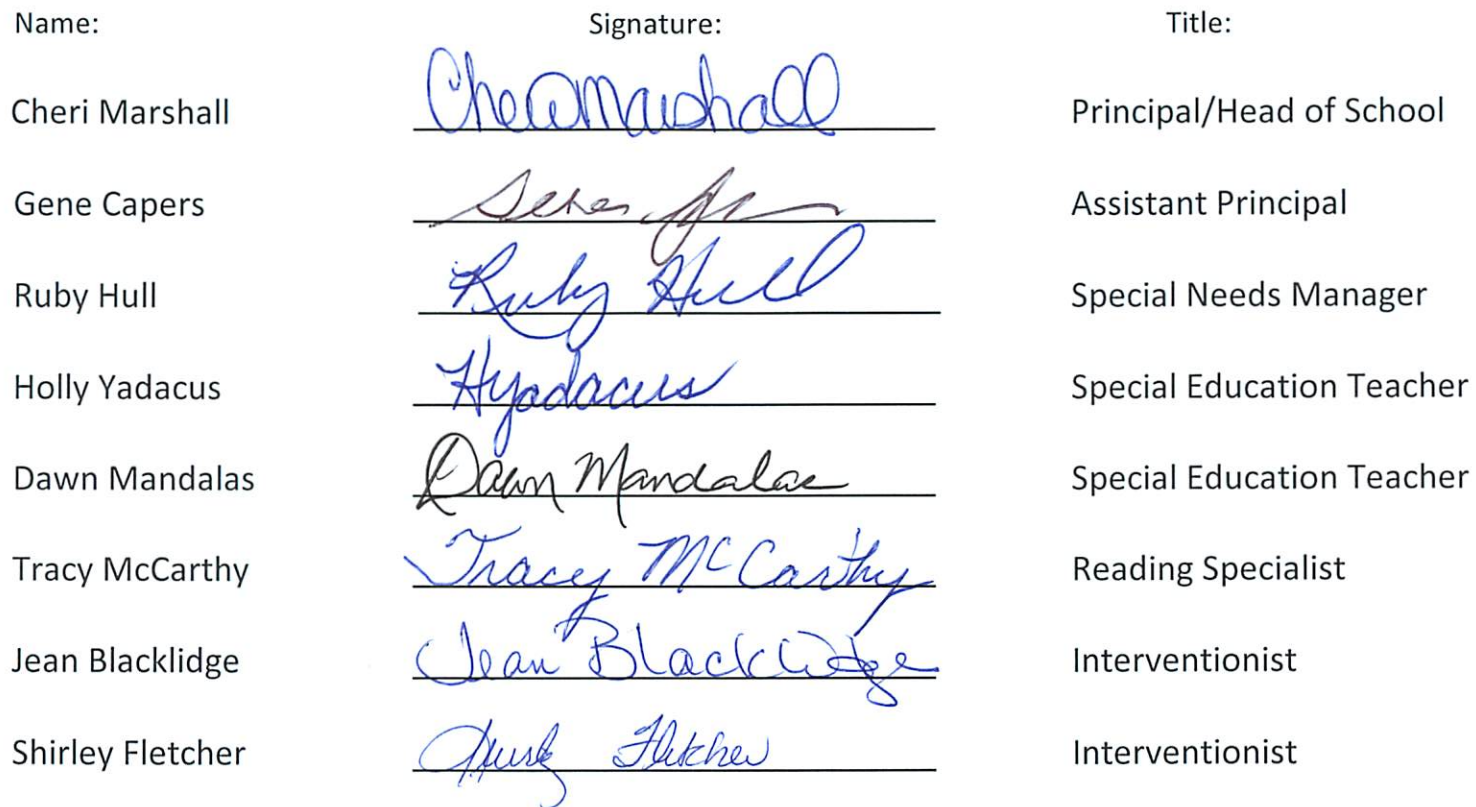 Name: Signature: Title:
Cheri Marshall Cheri Marshall Principal/Head of School
Gene Capers Assistant Principal
Ruby Hull Ruby Hull Special Needs Manager
Holly Yadacus HYadacus Special Education Teacher
Dawn Mandalas Dawn Mandalas Special Education Teacher
Tracy McCarthy Tracy McCarthy Reading Specialist
Jean Blacklidge Jean Blacklidge Interventionist
Shirley Fletcher Fletcher Interventionist